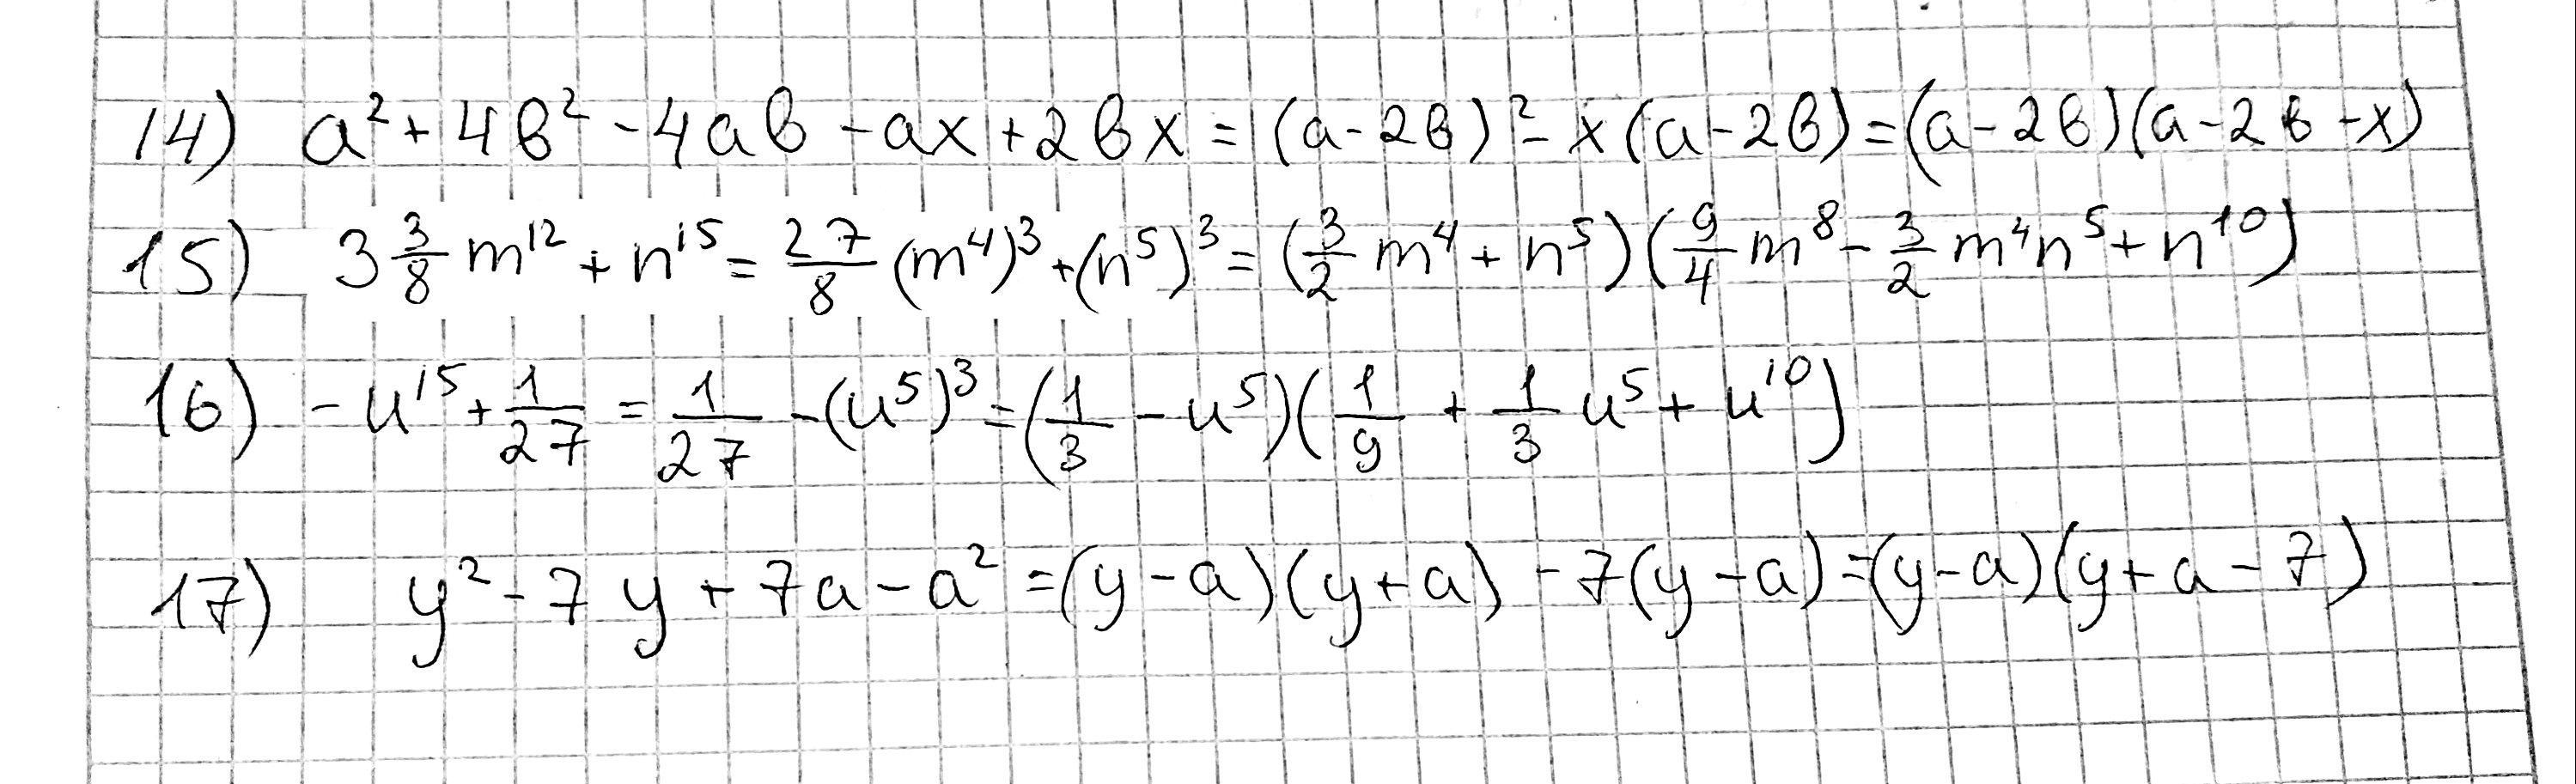 14) a² + 4в² - 4aв - ax + 2вx = (a - 2в)² - x(a - 2в) = (a - 2в)(a - 2в - x)
15) 3 3/8 m¹² + n¹⁵ = 27/8 (m⁴)³ + (n⁵)³ = (3/2 m⁴ + n⁵)(9/4 m⁸ - 3/2 m⁴n⁵ + n¹⁰)
16) - u¹⁵ + 1/27 = 1/27 - (u⁵)³ = (1/3 - u⁵)(1/9 + 1/3 u⁵ + u¹⁰)
17) y² - 7y + 7a - a² = (y - a)(y + a) - 7(y - a) = (y - a)(y + a - 7)